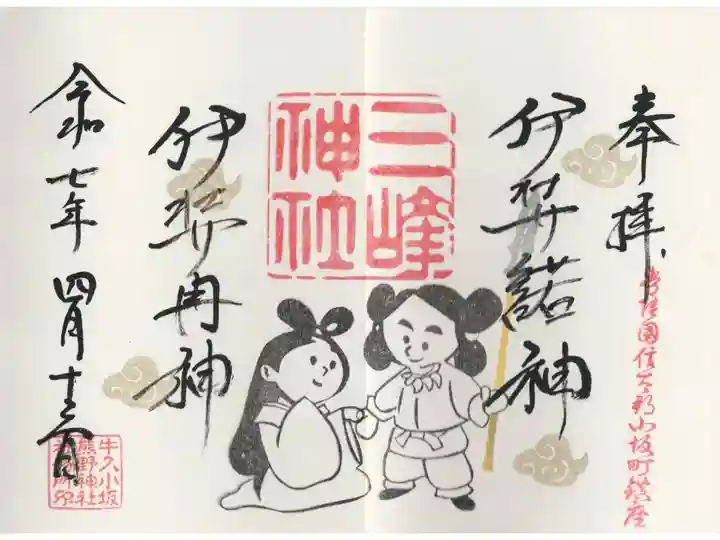 奉拝
常陸国信太郡小坂町鎮座
伊弉諾神
三峰
神社
伊弉冉神
令和七年四月十三日
牛久小坂
熊野神社